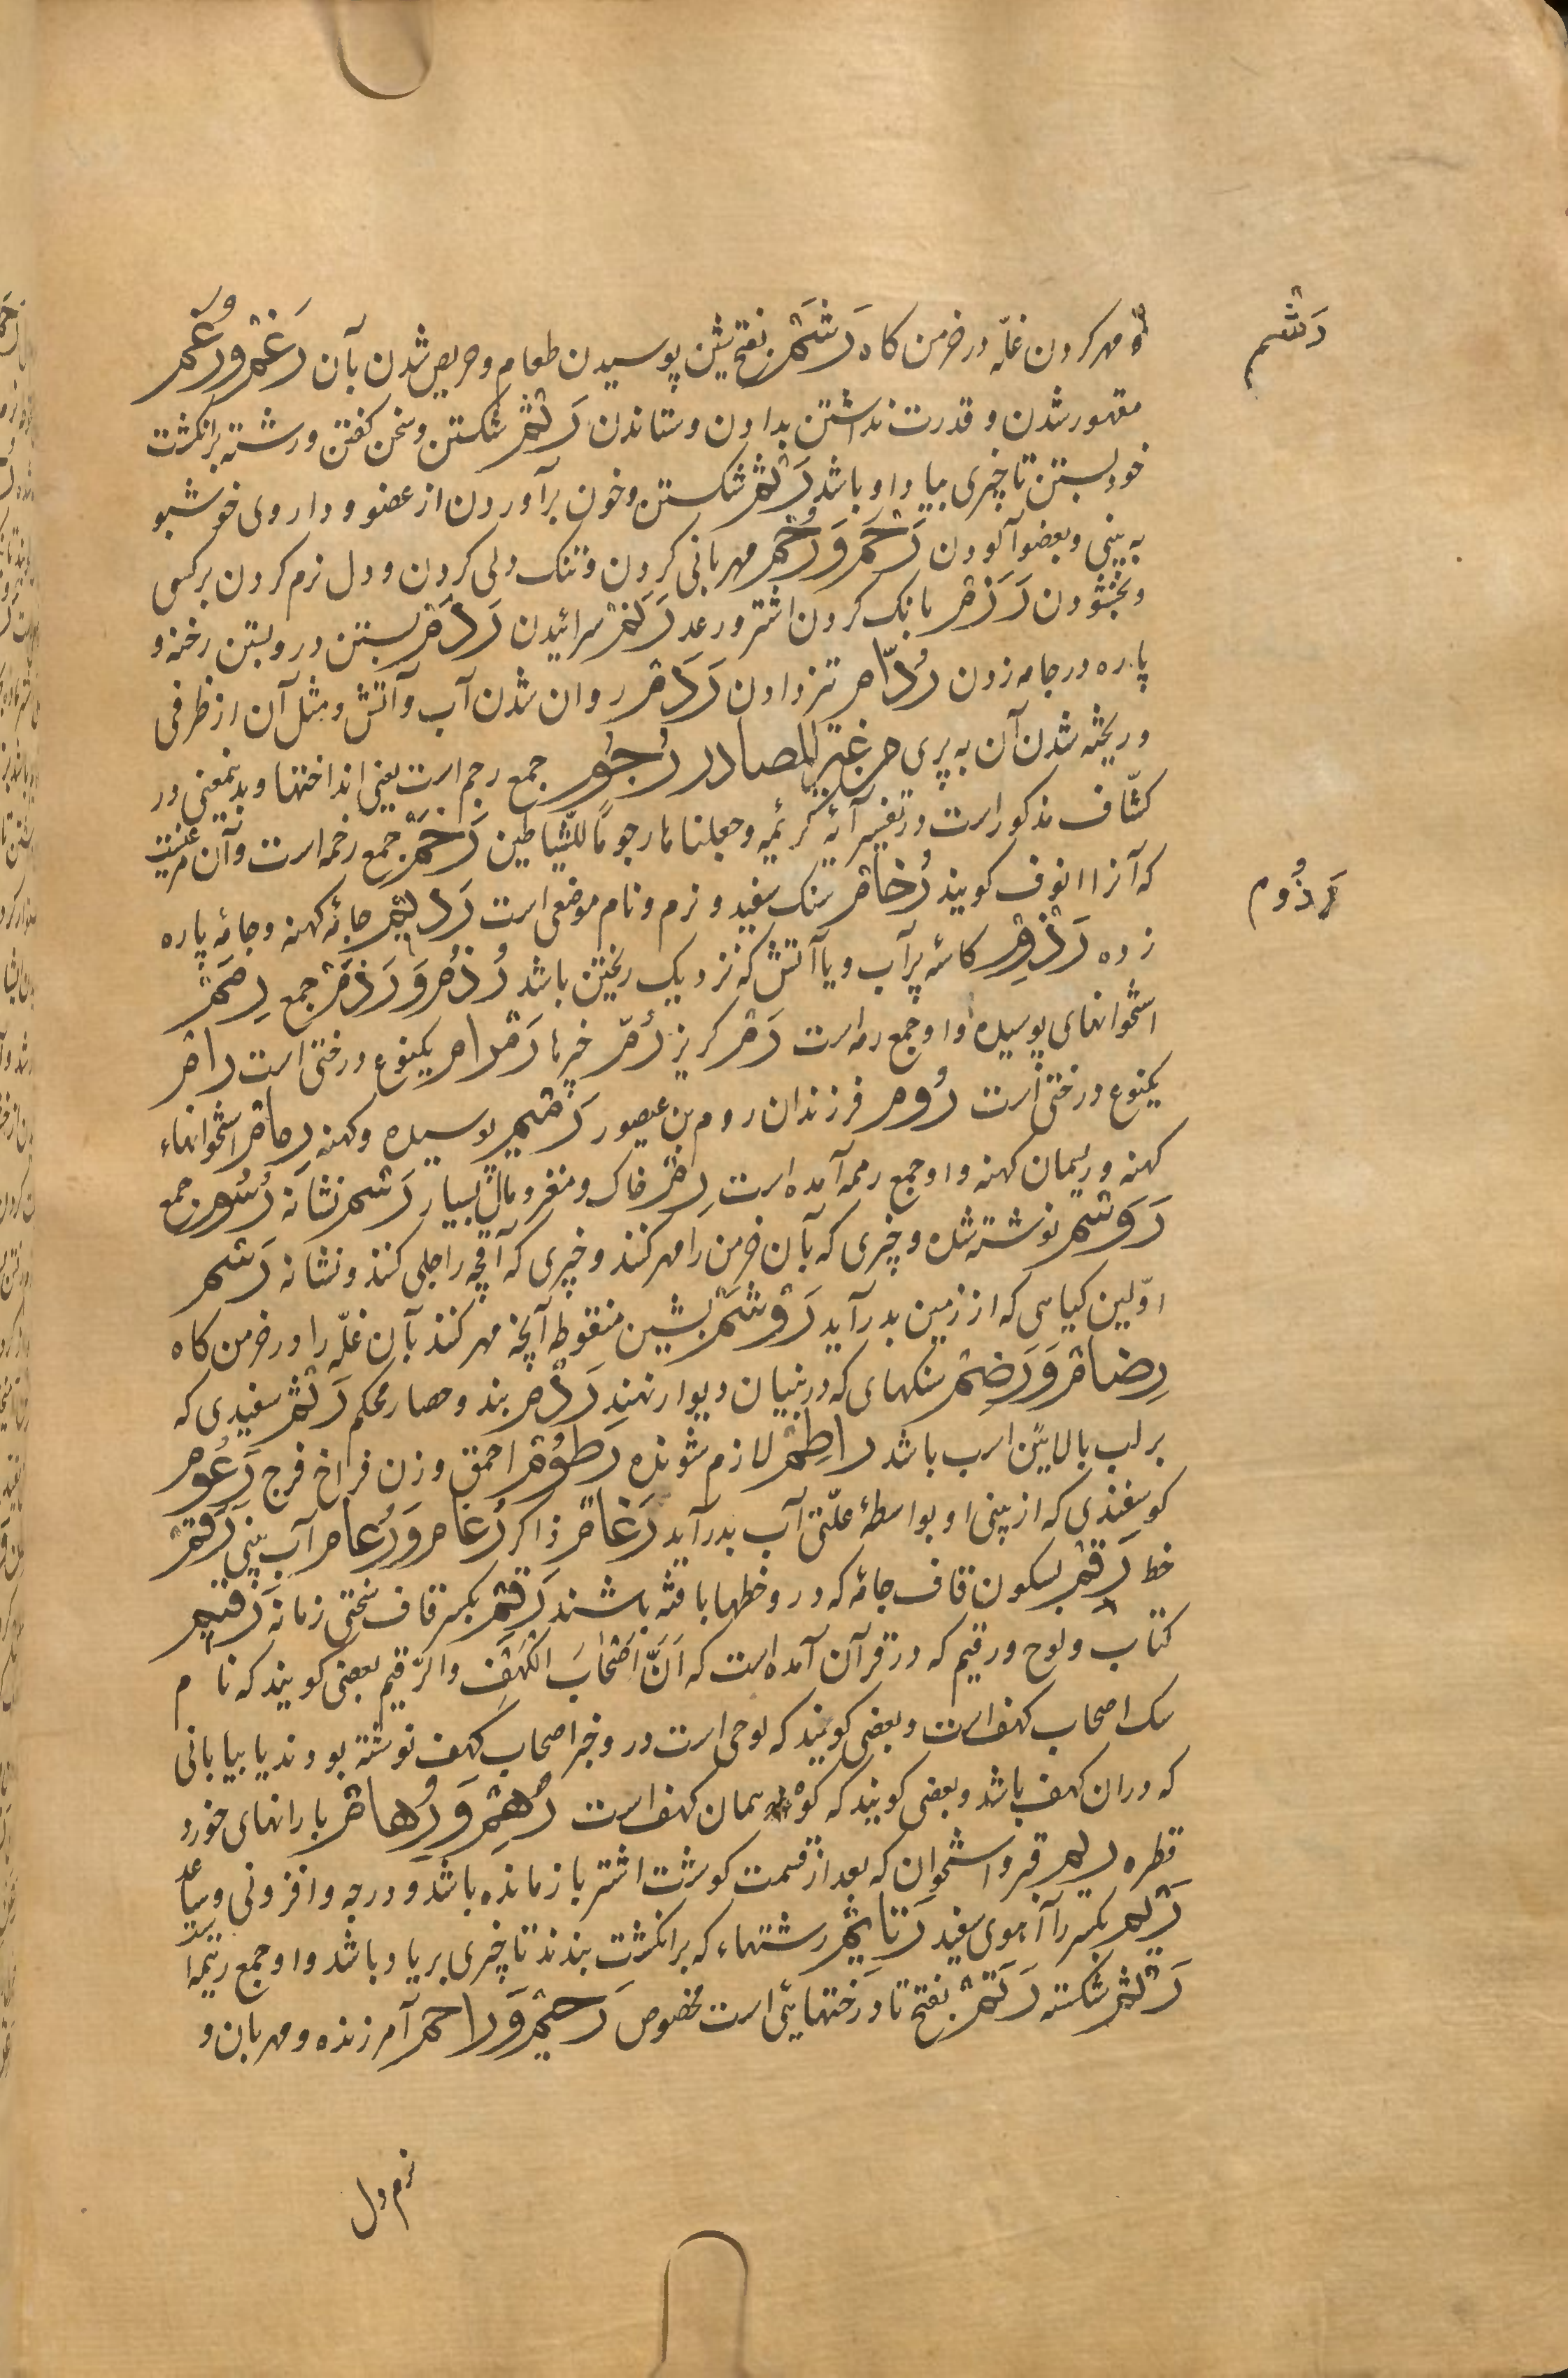 رَشْم
مهر کردن غلّه در خرمن کاه رَشَمْ بفتح شین پوسیدن طعام و حریص شدن بآن رَغْم و رُغم
مقهور شدن و قدرت نداشتن بدادن و ستاندن رَتْم شکستن و سخن کفتن و رشته بر انکشت
خود بستن تا چیزی بیاد او باشد رَثْم شکستن و خون برآوردن از عضو و داروی خوشبو
به بینی و بعضو آلودن رَحْم وَ رُحْم مهربانی کردن و تنک دلی کردن و دل نرم کردن بر کسی
و بخشودن رَزَم بانک کردن اشتر و رعد رَنَم سرائیدن رَدْم بستن در و بستن رخنه و
پاره در جامه زدن رُدّام تیز دادن رَذَم روان شدن آب و آتش و مثل آن از ظرفی
و ریخته شدن آن به پری من غیر المصادر رُجُوم جمع رجم است یعنی انداختنها و بدینمعنی در
کشّاف مذکور است در تفسیر آیهٔ کریمه وجعلناها رجوماً للشّیاطین رَخَمْ جمع رخمه است و آن مرغیست
که آنرا انوف کویند رُخام سنک سفید و نرم و نام موضعی است رَدِیم جامهٔ کهنه و جامهٔ پاره
رَذُوم
زده رَذْم کاسهٔ پر آب و یا آتش که نزدیک ریختن باشد رُذُم وَ رَذَم جمع رِمَم
استخوانهای پوسیده و او جمع رمه است رَم کریز رُمّ چیزها رَمْرام یکنوع درختی است رام
یکنوع درختی است رُوم فرزندان روم بن عیصو رَمیم پوسیده و کهنه رِمام استخوانهاء
کهنه و ریسمان کهنه و او جمع رمه آمده است رِم خاک و مغز و مال بسیار رَسم نشانه رُسُوم جمع
رَوسَم نوشته شده و چیزی که بآن خرمن را مهر کنند و چیزی که آقچه را جلی کنند و نشانه رَشَم
اوّلین کیاهی که از زمین بدر آید رَوشَم بشین منقوطه آنچه مهر کنند بآن غلّه را در خرمن کاه
رِضام وَ رَضِم سنکهای که در بنیان دیوار نهند رَدْم بند و حصار محکم رَثَم سفیدی که
بر لب بالایین اسب باشد راطِم لازم شونده رَطُوم احمق و زن فراخ فرج رَعُوم
کوسفندی که از بینی او بواسطهٔ علّتی آب بدر آید رَغام ذاکر رُعام وَ رُغام آب بینی رَقَم
خط رَقْم بسکون قاف جامه که درو خطها بافته باشند رَقِم بکسر قاف سختی زمانه رَقیم
کتاب و لوح و رقیم که در قرآن آمده است که اَنَّ اَصْحابَ الْکَهْفِ وَالرَّقیم بعضی کویند که نام
سک اصحاب کهف است و بعضی کویند که لوحی است درو خبر اصحاب کهف نوشته بودند یا بیابانی
که دران کهف باشد و بعضی کویند که کوه همان کهف است رُهْم وَ رُهام بارانهای خورد
قطره ریم قبر و استخوان که بعد از قسمت کوشت اشتر باز مانده باشد و درجه و افزونی و ساعد
رِیم بکسر راآ آهوی سفید رَتایم رشتهاء که بر انکشت بندند تا چیزی بر یاد باشد و او جمع رتیمه است
رَتْم شکسته رَتَمْ بفتح تا درختهایی است مخصوص رَحیم وَ راحم آمرزنده و مهربان و
نرم دل